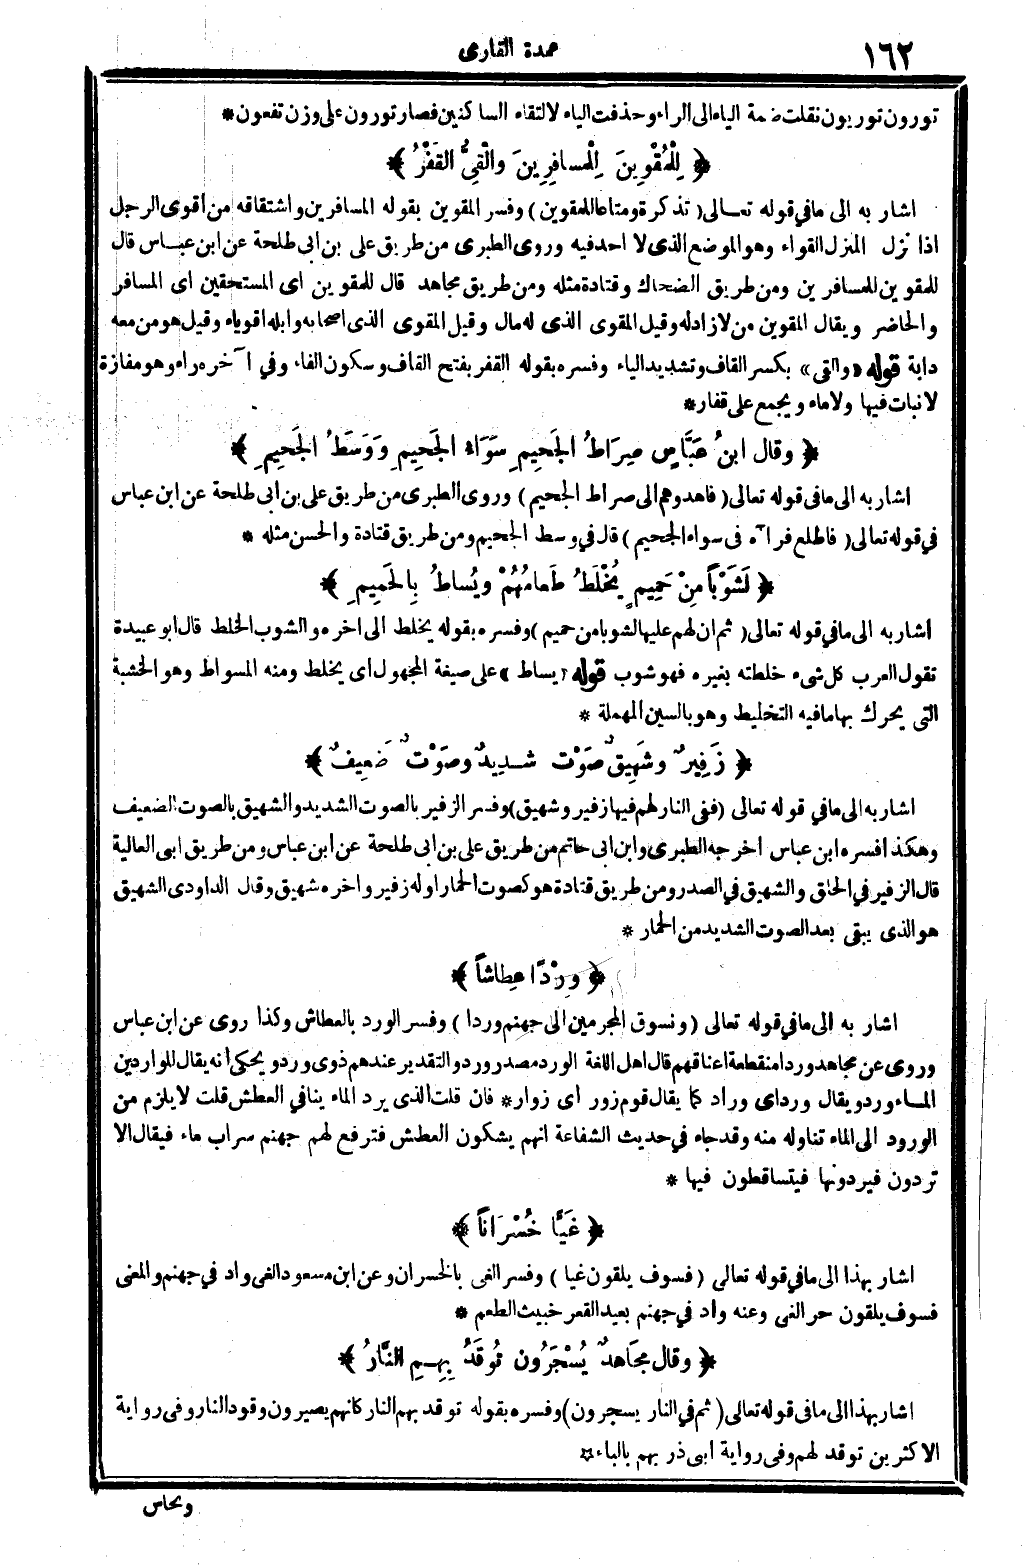 ١٦٢
عمدة القارى
تورون توريون نقلت ضمة الياء الى الراء وحذفت الياء لالتقاء الساكنين فصار تورون على وزن تفعون *
﴿ لِلْمُقْوِينَ لِلْمسافِرِينَ والْقِيُّ القَفْرُ ﴾
اشار به الى ما في قوله تعالى ( تذكرة ومتاعا للمقوين ) وفسر المقوين بقوله المسافرين واشتقاقه من أقوى الرجل
اذا نزل المنزل القواء وهو الموضع الذى لا احد فيه وروى الطبرى من طريق على بن ابى طلحة عن ابن عباس قال
للمقوين للمسافرين ومن طريق الضحاك وقتادة مثله ومن طريق مجاهد قال للمقوين اى المستحقين اى المسافر
والحاضر ويقال المقوين من لا زاد له وقيل المقوى الذى له مال وقيل المقوى الذى اصحابه وابله اقوياء وقيل هو من معه
دابة قوله «والقى» بكسر القاف وتشديد الياء وفسره بقوله القفر بفتح القاف وسكون الفاء وفي آخره راء وهو مفازة
لا نبات فيها ولا ماء ويجمع على قفار *
﴿ وقال ابنُ عَبَّاسٍ صِرَاطُ الجَحِيمِ سَوَاءُ الجَحِيمِ وَوَسَطُ الجَحِيمِ ﴾
اشار به الى ما فى قوله تعالى ( فاهدوهم الى صراط الجحيم ) وروى الطبرى من طريق على بن ابى طلحة عن ابن عباس
في قوله تعالى ( فاطلع فرآه فى سواء الجحيم ) قال في وسط الجحيم ومن طريق قتادة والحسن مثله *
﴿ لَشَوْبًا مِنْ حَمِيمٍ يُخْلَطُ طَعامُهُمْ ويُساطُ بِالحَمِيمِ ﴾
اشار به الى ما في قوله تعالى ( ثم ان لهم عليها لشوبا من حميم ) وفسره بقوله يخلط الى اخره والشوب الخلط قال ابو عبيدة
تقول العرب كل شىء خلطته بغيره فهو شوب قوله «يساط » على صيغة المجهول اى يخلط ومنه المسواط وهو الخشبة
التى يحرك بها ما فيه التخليط وهو بالسين المهملة *
﴿ زَفِيرٌ وشَهِيقٌ صَوْتٌ شَدِيدٌ وصَوْتٌ ضَعِيفٌ ﴾
اشار به الى ما في قوله تعالى ( ففى النار لهم فيها زفير وشهيق ) وفسر الزفير بالصوت الشديد والشهيق بالصوت الضعيف
وهكذا فسره ابن عباس اخرجه الطبرى وابن ابى حاتم من طريق على بن ابى طلحة عن ابن عباس ومن طريق ابى العالية
قال الزفير في الحلق والشهيق في الصدر ومن طريق قتادة هو كصوت الحمار اوله زفير واخره شهيق وقال الداودى الشهيق
هو الذى يبقى بعد الصوت الشديد من الحمار *
﴿ وِرْدًا عِطاشًا ﴾
اشار به الى ما في قوله تعالى ( ونسوق المجرمين الى جهنم وردا ) وفسر الورد بالعطاش وكذا روى عن ابن عباس
وروى عن مجاهد وردا منقطعة اعناقهم قال اهل اللغة الورد مصدر ورد والتقدير عندهم ذوى ورد ويحكى أنه يقال للواردين
الماء ورد ويقال ورد اى وراد كما يقال قوم زور اى زوار * فان قلت الذى يرد الماء ينافي العطش قلت لا يلزم من
الورود الى الماء تناوله منه وقد جاء في حديث الشفاعة انهم يشكون العطش فترفع لهم جهنم سراب ماء فيقال الا
تردون فيردونها فيتساقطون فيها *
﴿ غَيًّا خُسْرَانًا ﴾
اشار بهذا الى ما في قوله تعالى ( فسوف يلقون غيا ) وفسر الغى بالخسران وعن ابن مسعود الغى واد في جهنم والمعنى
فسوف يلقون حر الغى وعنه واد في جهنم بعيد القعر خبيث الطعم *
﴿ وقال مجَاهدٌ يُسْجَرُون تُوقَدُ بِهِمِ النَّارُ ﴾
اشار بهذا الى ما فى قوله تعالى ( ثم في النار يسجرون ) وفسره بقوله توقد بهم النار كانهم يصيرون وقود النار وفى رواية
الاكثرين توقد لهم وفى رواية ابى ذر بهم بالباء *
ونحاس